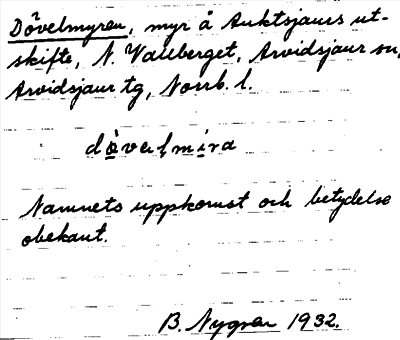 Dövelmyren, myr å Auktsjaurs ut-
skifte, N. Vallberget, Arvidsjaur sn,
Arvidsjaur tg, Norrb. l.
dåvalmira
Namnets uppkomst och betydelse
obekant.
B. Nygren 1932.